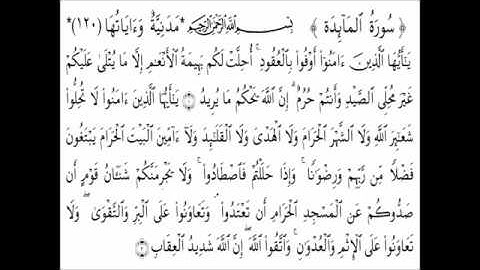 ﴿ سُورَةُ الْمَآئِدَةِ ﴾ بِسْمِ اللَّهِ الرَّحْمَٰنِ الرَّحِيمِ *مَدَنِيَّةٌ وَءَايَاتُهَا (١٢٠)*
يَٰٓأَيُّهَا ٱلَّذِينَ ءَامَنُوٓا۟ أَوْفُوا۟ بِٱلْعُقُودِ ۚ أُحِلَّتْ لَكُم بَهِيمَةُ ٱلْأَنْعَٰمِ إِلَّا مَا يُتْلَىٰ عَلَيْكُمْ
غَيْرَ مُحِلِّى ٱلصَّيْدِ وَأَنتُمْ حُرُمٌ ۗ إِنَّ ٱللَّهَ يَحْكُمُ مَا يُرِيدُ ۝١ يَٰٓأَيُّهَا ٱلَّذِينَ ءَامَنُوا۟ لَا تُحِلُّوا۟
شَعَٰٓئِرَ ٱللَّهِ وَلَا ٱلشَّهْرَ ٱلْحَرَامَ وَلَا ٱلْهَدْىَ وَلَا ٱلْقَلَٰٓئِدَ وَلَآ ءَآمِّينَ ٱلْبَيْتَ ٱلْحَرَامَ يَبْتَغُونَ
فَضْلًا مِّن رَّبِّهِمْ وَرِضْوَٰنًا ۚ وَإِذَا حَلَلْتُمْ فَٱصْطَادُوا۟ ۚ وَلَا يَجْرِمَنَّكُمْ شَنَـَٔانُ قَوْمٍ أَن
صَدُّوكُمْ عَنِ ٱلْمَسْجِدِ ٱلْحَرَامِ أَن تَعْتَدُوا۟ ۘ وَتَعَاوَنُوا۟ عَلَى ٱلْبِرِّ وَٱلتَّقْوَىٰ ۖ وَلَا
تَعَاوَنُوا۟ عَلَى ٱلْإِثْمِ وَٱلْعُدْوَٰنِ ۚ وَٱتَّقُوا۟ ٱللَّهَ ۖ إِنَّ ٱللَّهَ شَدِيدُ ٱلْعِقَابِ ۝٢